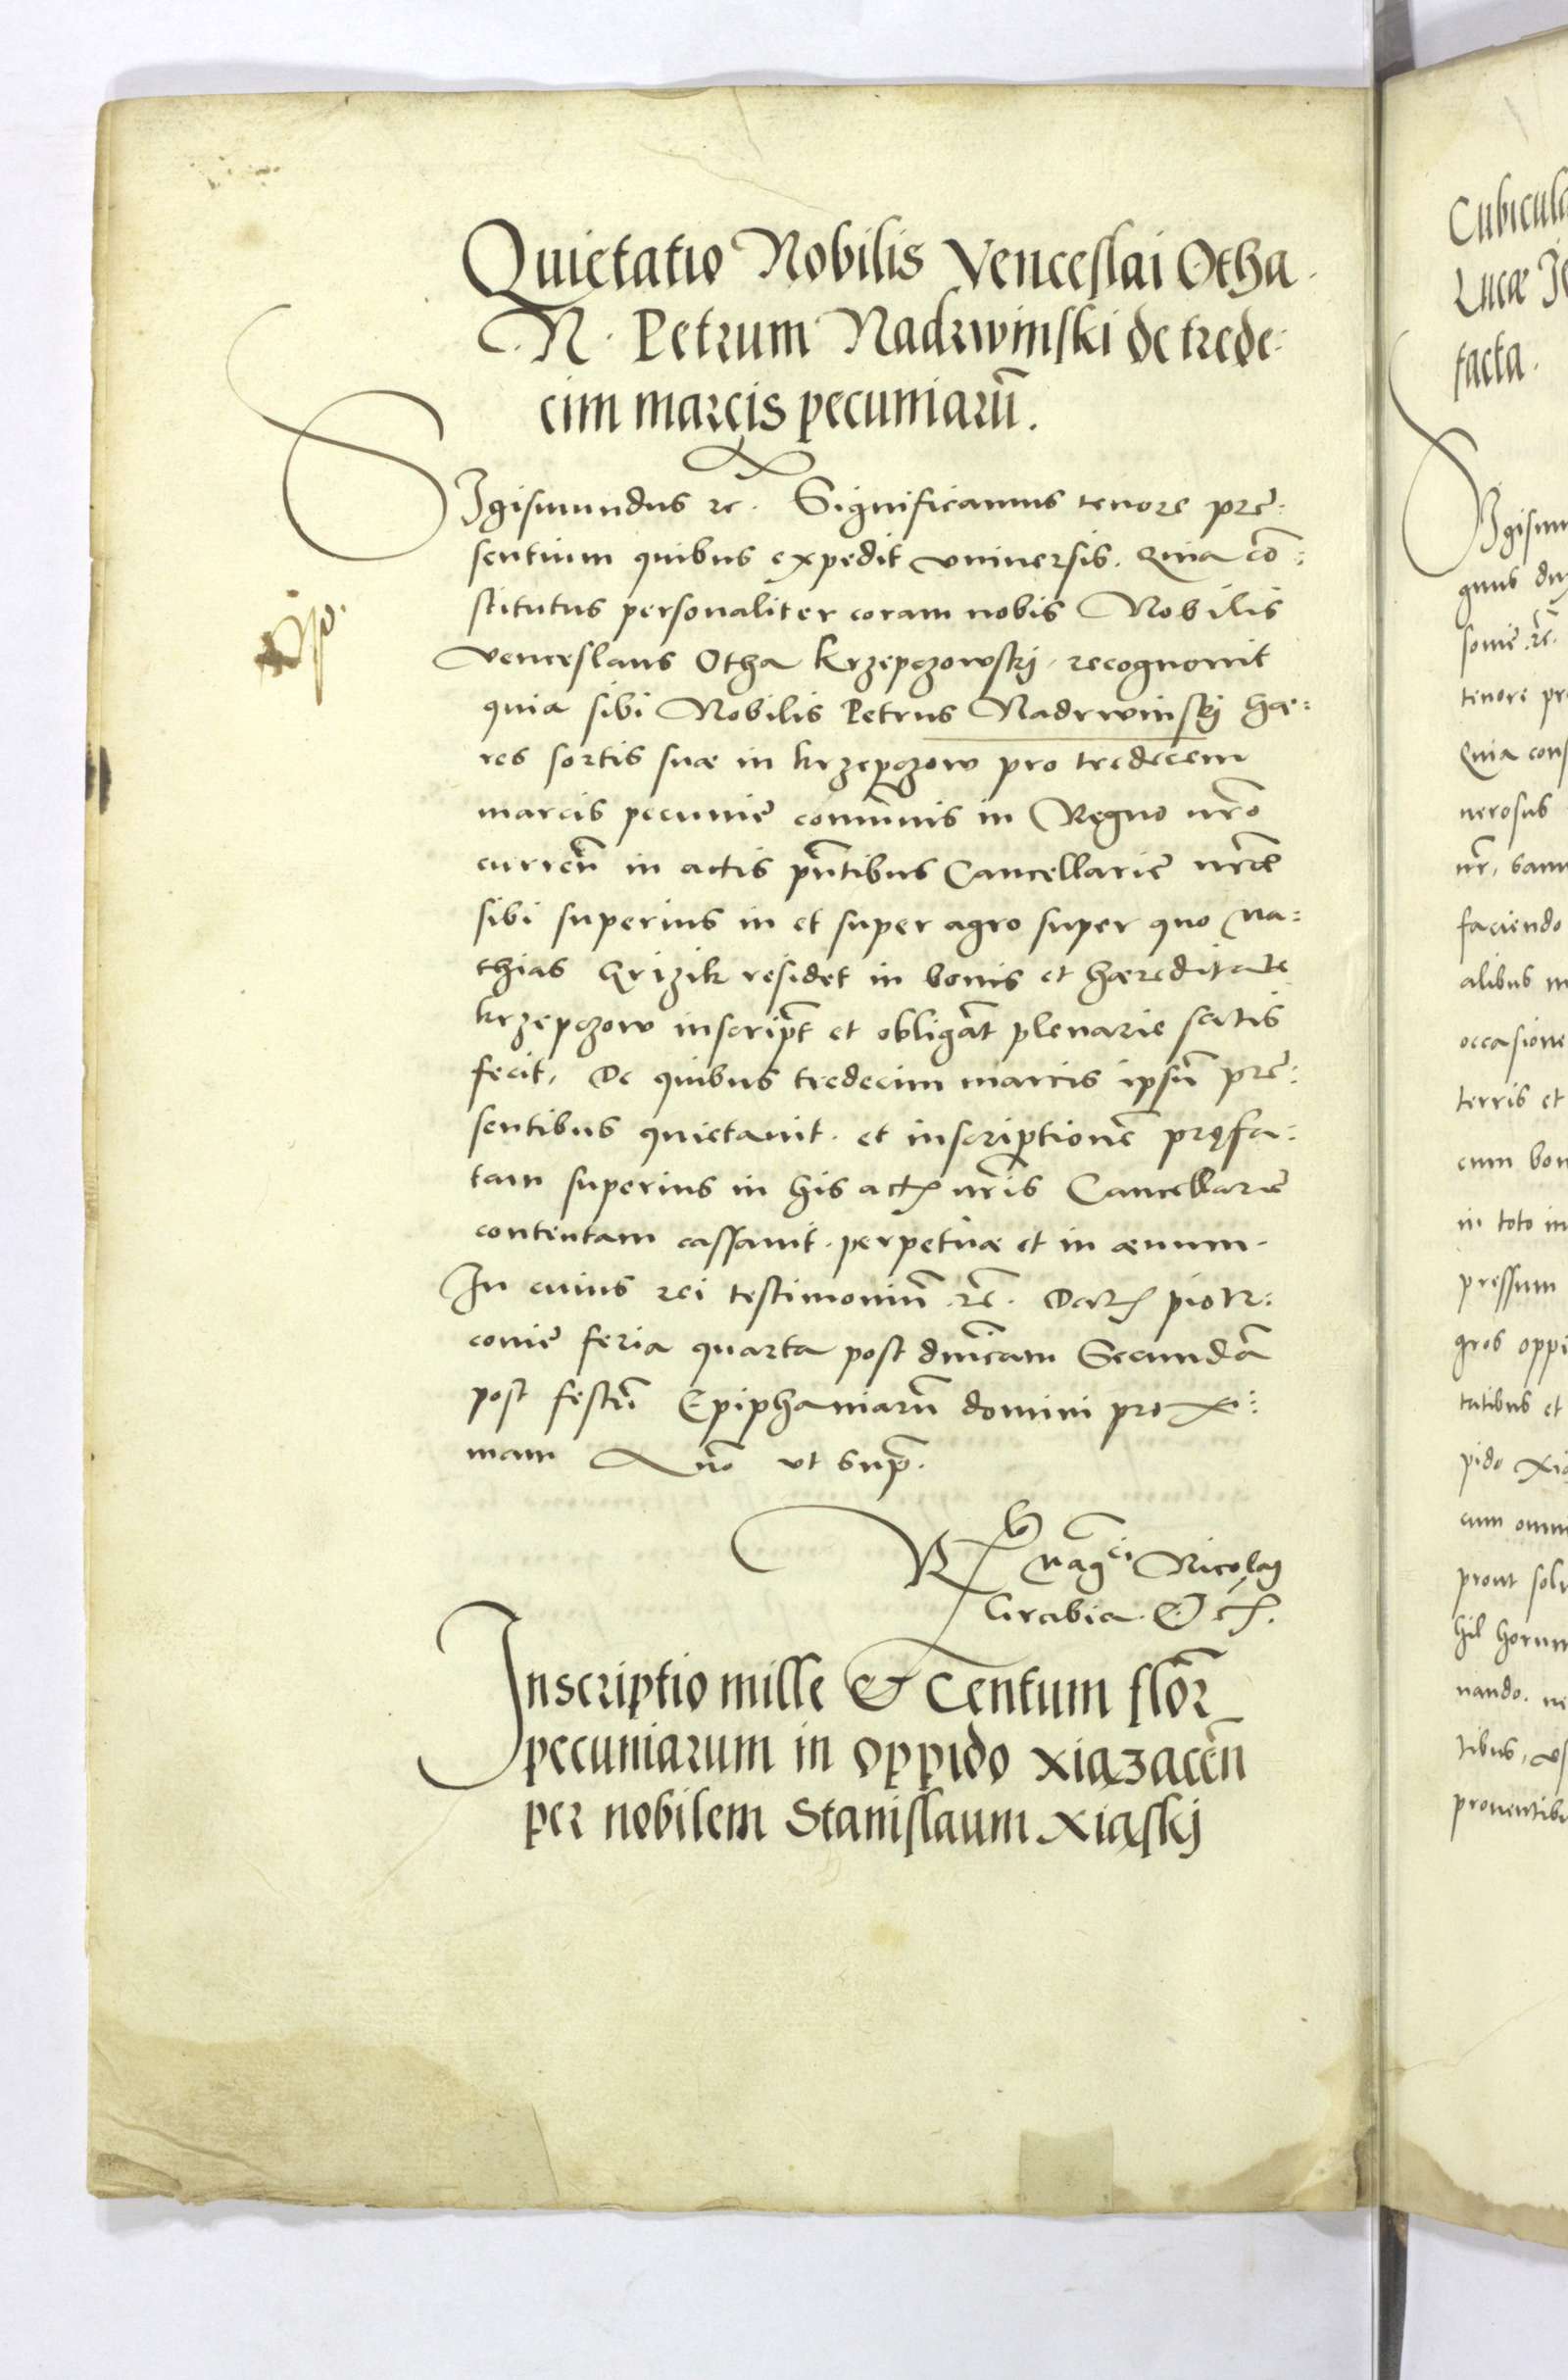 Quietatio Nobilis Venceslai Otha
N. Petrum Nadrwinski de trede:
cim marcis pecuniarũ.
SIgismundus ꝛc. Significamus tenore pre:
sentium quibus expedit vniuersis. Quia cõ:
stitutus personaliter coram nobis Nobilis
Venceslaus Otha Krzepczowskj recognouit
quia sibi Nobilis Petrus Nadrwinskj hæ:
res sortis suæ in Krzepczow pro tredecem
marcis pecunie com̃unis in Regno nr̃o
curreñ in actis pñtibus Cancellarie nr̃æ
sibi superius in et super agro super quo Ma:
thias Grizik residet in bonis et hæreditate
Krzepczow inscript̃ et obligat̃ plenarie satis
fecit, De quibus tredecim marcis ipsũ pre:
sentibus quietauit. et inscriptionẽ pręfa:
tam superius in his actꝭ nr̃is Cancellarie
contentam cassauit. perpetuæ et in æuum.
In cuius rei testimoniũ ꝛc̃. Datꝭ piotr:
couie feria quarta post dñicam Secundã
post festũ Epiphaniarũ domini proxi:
mam Anño vt supr̃.
Rᵒ Mag̃ci Nicolaj
Grabia. Etcꝭ.
Inscriptio mille & Centum flor̃
pecuniarum in oppido xiązaceñ
per nobilem Stanislaum xiąskj
Cubicula
Lucæ
facta.
tenore pr
Quia cons
nerosus
faciendo
alibus
occasione
terris et
cum bon
in toto in
pressum
gros oppi
tutibus et
pido xią
cum omni
prout solu
hil horum
nando. ne
tibus,
prouentibu